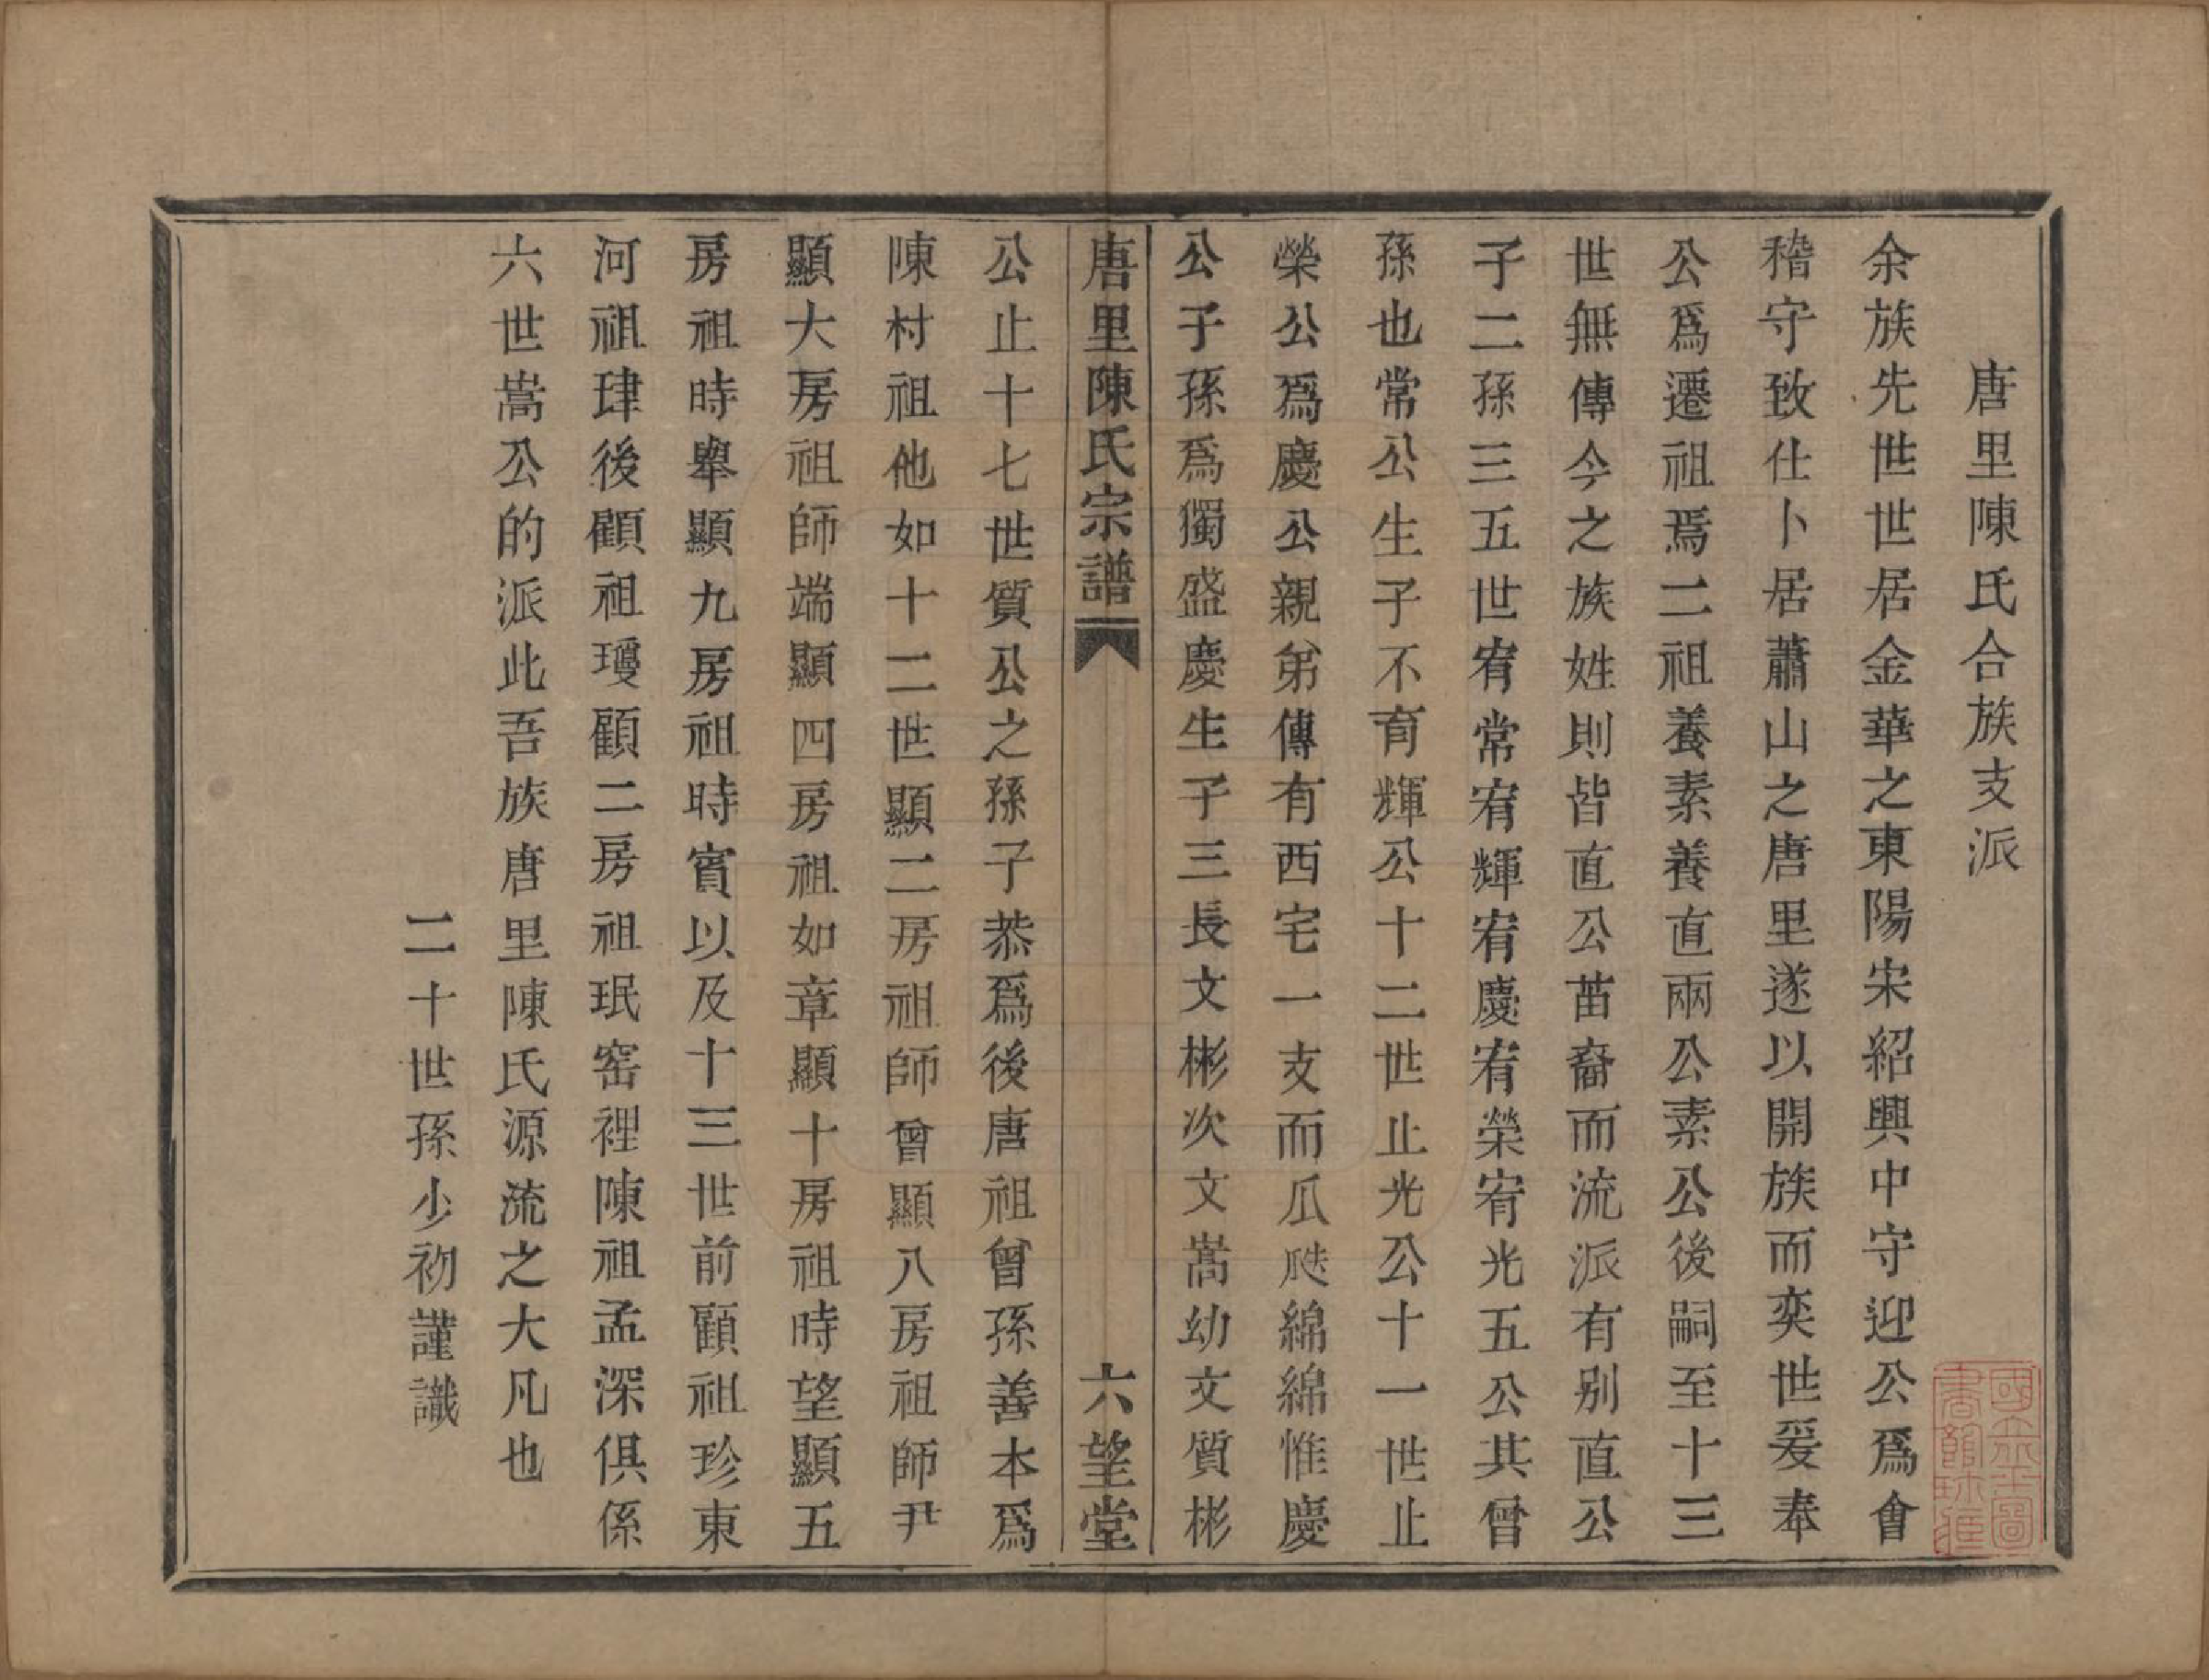 唐里陳氏合族支派
余族先世世居金華之東陽宋紹興中守迎公爲會
稽守致仕卜居蕭山之唐里遂以開族而奕世爰奉
公爲遷祖焉二祖養素養直兩公素公後嗣至十三
世無傳今之族姓則皆直公苗裔而流派有別直公
子二孫三五世宥常宥輝宥慶宥榮宥光五公其曾
孫也常公生子不育輝公十二世止光公十一世止
榮公爲慶公親弟傳有西宅一支而瓜瓞綿綿惟慶
公子孫爲獨盛慶生子三長文彬次文嵩幼文質彬
唐里陳氏宗譜
六望堂
公止十七世質公之孫子恭爲後唐祖曾孫善本爲
陳村祖他如十二世顯二房祖師曾顯八房祖師尹
顯大房祖師端顯四房祖如章顯十房祖時望顯五
房祖時舉顯九房祖時賓以及十三世前顧祖珍東
河祖珒後顧祖瓊顧二房祖珉窑裡陳祖孟深俱係
六世嵩公的派此吾族唐里陳氏源流之大凡也
二十世孫少初謹識
國立北平圖
書館珍藏